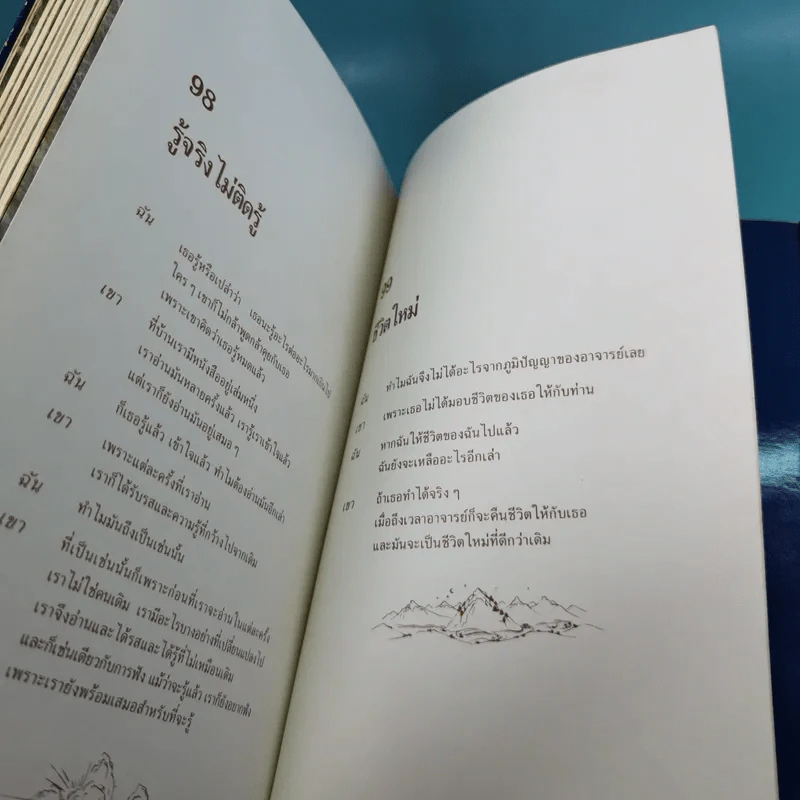 98
รู้จริง ไม่ติดรู้
ฉัน
เธอรู้หรือเปล่าว่า เธอนะรู้อะไรต่ออะไรมากเกินไป
ใคร ๆ เขาก็ไม่กล้าพูดกล้าคุยกับเธอ
เพราะเขาคิดว่าเธอรู้หมดแล้ว
เขา
ที่บ้านเรามีหนังสืออยู่เล่มหนึ่ง
เราอ่านมันหลายครั้งแล้ว เรารู้เราเข้าใจแล้ว
แต่เราก็ยังอ่านมันอยู่เสมอ ๆ
ฉัน
ก็เธอรู้แล้ว เข้าใจแล้ว ทำไมต้องอ่านมันอีกเล่า
เขา
เพราะแต่ละครั้งที่เราอ่าน
เราก็ได้รับรสและความรู้ที่กว้างไปจากเดิม
ฉัน
ทำไมมันถึงเป็นเช่นนั้น
เขา
ที่เป็นเช่นนั้นก็เพราะก่อนที่เราจะอ่านในแต่ละครั้ง
เราไม่ใช่คนเดิม เรามีอะไรบางอย่างที่เปลี่ยนแปลงไป
เราจึงอ่านและได้รสและได้รู้ที่ไม่เหมือนเดิม
และก็เช่นเดียวกับการฟัง แม้ว่าจะรู้แล้ว เราก็ยังอยากฟัง
เพราะเรายังพร้อมเสมอสำหรับที่จะรู้
99
ชีวิตใหม่
ฉัน ทำไมฉันจึงไม่ได้อะไรจากภูมิปัญญาของอาจารย์เลย
เขา เพราะเธอไม่ได้มอบชีวิตของเธอให้กับท่าน
ฉัน หากฉันให้ชีวิตของฉันไปแล้ว
ฉันยังจะเหลืออะไรอีกเล่า
เขา ถ้าเธอทำได้จริง ๆ
เมื่อถึงเวลาอาจารย์ก็จะคืนชีวิตให้กับเธอ
และมันจะเป็นชีวิตใหม่ที่ดีกว่าเดิม